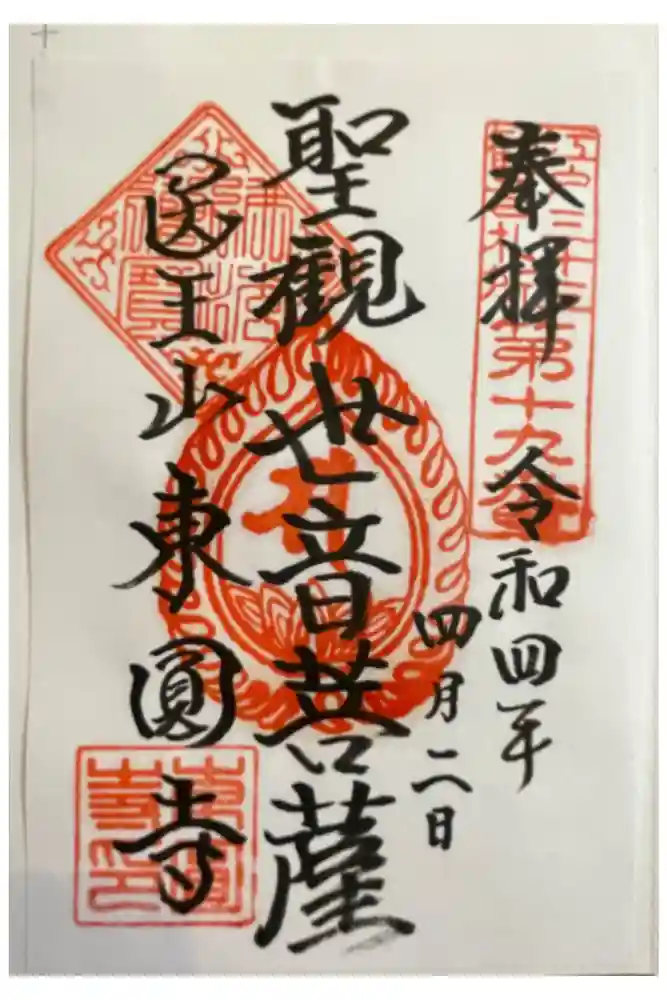 奉拝
令和四年
四月二日
聖觀世音菩薩
医王山東圓寺
第十九番